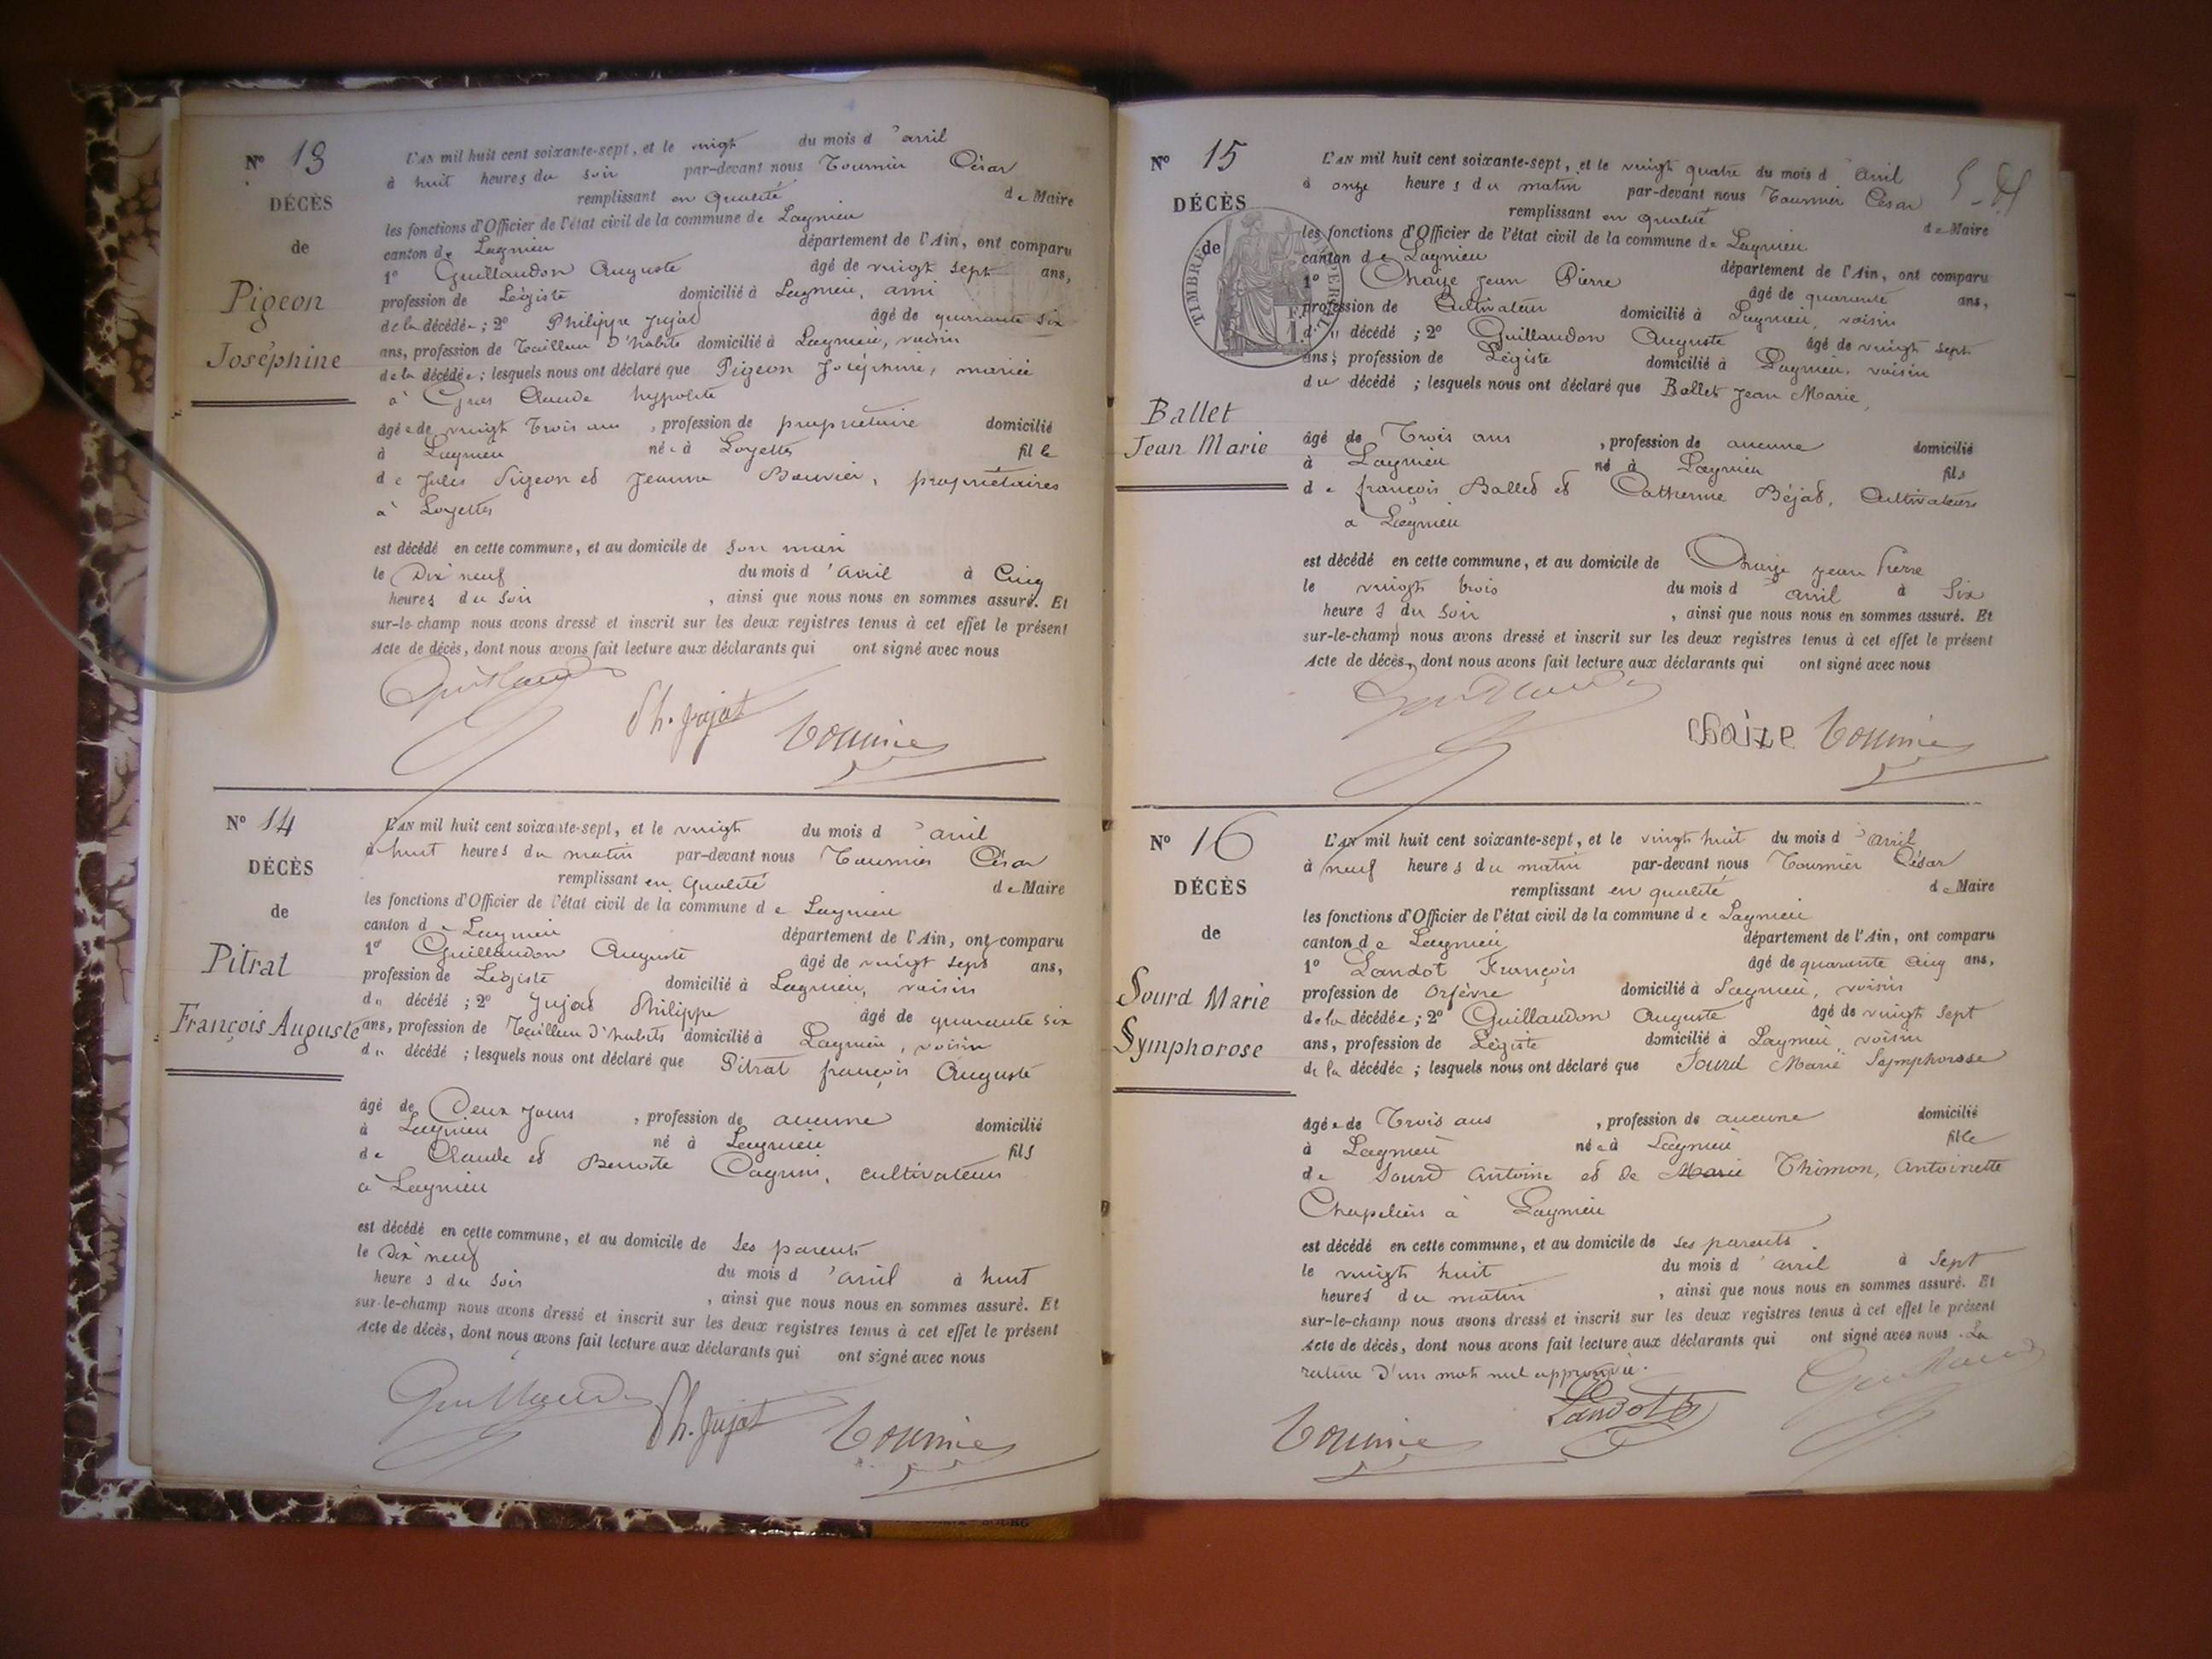 N° 13
DÉCÈS
de
Pigeon
Joséphine
L'AN mil huit cent soixante-sept, et le vingt du mois d'avril
à huit heures du soir par-devant nous Tournier César
remplissant en qualité de Maire
les fonctions d'Officier de l'état civil de la commune de Lagnieu
canton de Lagnieu département de l'Ain, ont comparu
1° Guillaudon Auguste âgé de vingt sept ans,
profession de Légiste domicilié à Lagnieu, ami
de la décédée; 2° Philippe Jujat âgé de quarante six
ans, profession de Tailleur d'habits domicilié à Lagnieu, voisin
de la décédée; lesquels nous ont déclaré que Pigeon Joséphine, mariée
à Claude hypolite
âgée de vingt Trois ans, profession de propriétaire domicilié
à Lagnieu née à Loyettes fille
de Jules Pigeon et Jeanne Bouvier, propriétaires
à Loyettes
est décédé en cette commune, et au domicile de son mari
le Dix neuf du mois d'avril à Cinq
heures du soir, ainsi que nous nous en sommes assuré. Et
sur-le-champ nous avons dressé et inscrit sur les deux registres tenus à cet effet le présent
Acte de décès, dont nous avons fait lecture aux déclarants qui ont signé avec nous
Ph. Jujat Tournier
N° 14
DÉCÈS
de
Pitrat
François Auguste
L'AN mil huit cent soixante-sept, et le vingt du mois d'avril
à huit heures du matin par-devant nous Tournier César
remplissant en qualité de Maire
les fonctions d'Officier de l'état civil de la commune de Lagnieu
canton de Lagnieu département de l'Ain, ont comparu
1° Guillaudon Auguste âgé de vingt sept ans,
profession de Légiste domicilié à Lagnieu, voisin
du décédé; 2° Jujat Philippe âgé de quarante six
ans, profession de Tailleur d'habits domicilié à Lagnieu, voisin
du décédé; lesquels nous ont déclaré que Pitrat françois Auguste
âgé de Deux jours, profession de aucune domicilié
à Lagnieu né à Lagnieu fils
de Claude et Benoite cultivateurs
à Lagnieu
est décédé en cette commune, et au domicile de ses parents
le Dix neuf du mois d'avril à huit
heures du soir, ainsi que nous nous en sommes assuré. Et
sur-le-champ nous avons dressé et inscrit sur les deux registres tenus à cet effet le présent
Acte de décès, dont nous avons fait lecture aux déclarants qui ont signé avec nous
Ph. Jujat Tournier
N° 15
DÉCÈS
de
Ballet
Jean Marie
L'AN mil huit cent soixante-sept, et le vingt quatre du mois d'avril
à onze heures du matin par-devant nous Tournier César
remplissant en qualité de Maire
les fonctions d'Officier de l'état civil de la commune de Lagnieu
canton de Lagnieu département de l'Ain, ont comparu
1° Chaize Jean Pierre âgé de quarante ans,
profession de Cultivateur domicilié à Lagnieu, voisin
du décédé; 2° Guillaudon Auguste âgé de vingt sept
ans, profession de Légiste domicilié à Lagnieu, voisin
du décédé; lesquels nous ont déclaré que Ballet Jean Marie,
âgé de Trois ans, profession de aucune domicilié
à Lagnieu né à Lagnieu fils
de françois Ballet et Catherine Béjat, Cultivateurs
à Lagnieu
est décédé en cette commune, et au domicile de Chaize Jean Pierre
le vingt trois du mois d'avril à Six
heures du soir, ainsi que nous nous en sommes assuré. Et
sur-le-champ nous avons dressé et inscrit sur les deux registres tenus à cet effet le présent
Acte de décès, dont nous avons fait lecture aux déclarants qui ont signé avec nous
Chaize Tournier
N° 16
DÉCÈS
de
Sourd Marie
Symphorose
L'AN mil huit cent soixante-sept, et le vingt huit du mois d'avril
à neuf heures du matin par-devant nous Tournier César
remplissant en qualité de Maire
les fonctions d'Officier de l'état civil de la commune de Lagnieu
canton de Lagnieu département de l'Ain, ont comparu
1° Landot François âgé de quarante cinq ans,
profession de Orfèvre domicilié à Lagnieu, voisin
de la décédée; 2° Guillaudon Auguste âgé de vingt sept
ans, profession de Légiste domicilié à Lagnieu, voisin
de la décédée; lesquels nous ont déclaré que Sourd Marie Symphorose
âgée de Trois ans, profession de aucune domicilié
à Lagnieu née à Lagnieu fille
de Sourd Antoine et de Marie Thimon, Antoinette
Chapeliers à Lagnieu
est décédé en cette commune, et au domicile de ses parents
le vingt huit du mois d'avril à Sept
heures du matin, ainsi que nous nous en sommes assuré. Et
sur-le-champ nous avons dressé et inscrit sur les deux registres tenus à cet effet le présent
Acte de décès, dont nous avons fait lecture aux déclarants qui ont signé avec nous. La
rature d'un mot nul approuvée.
Tournier Landot